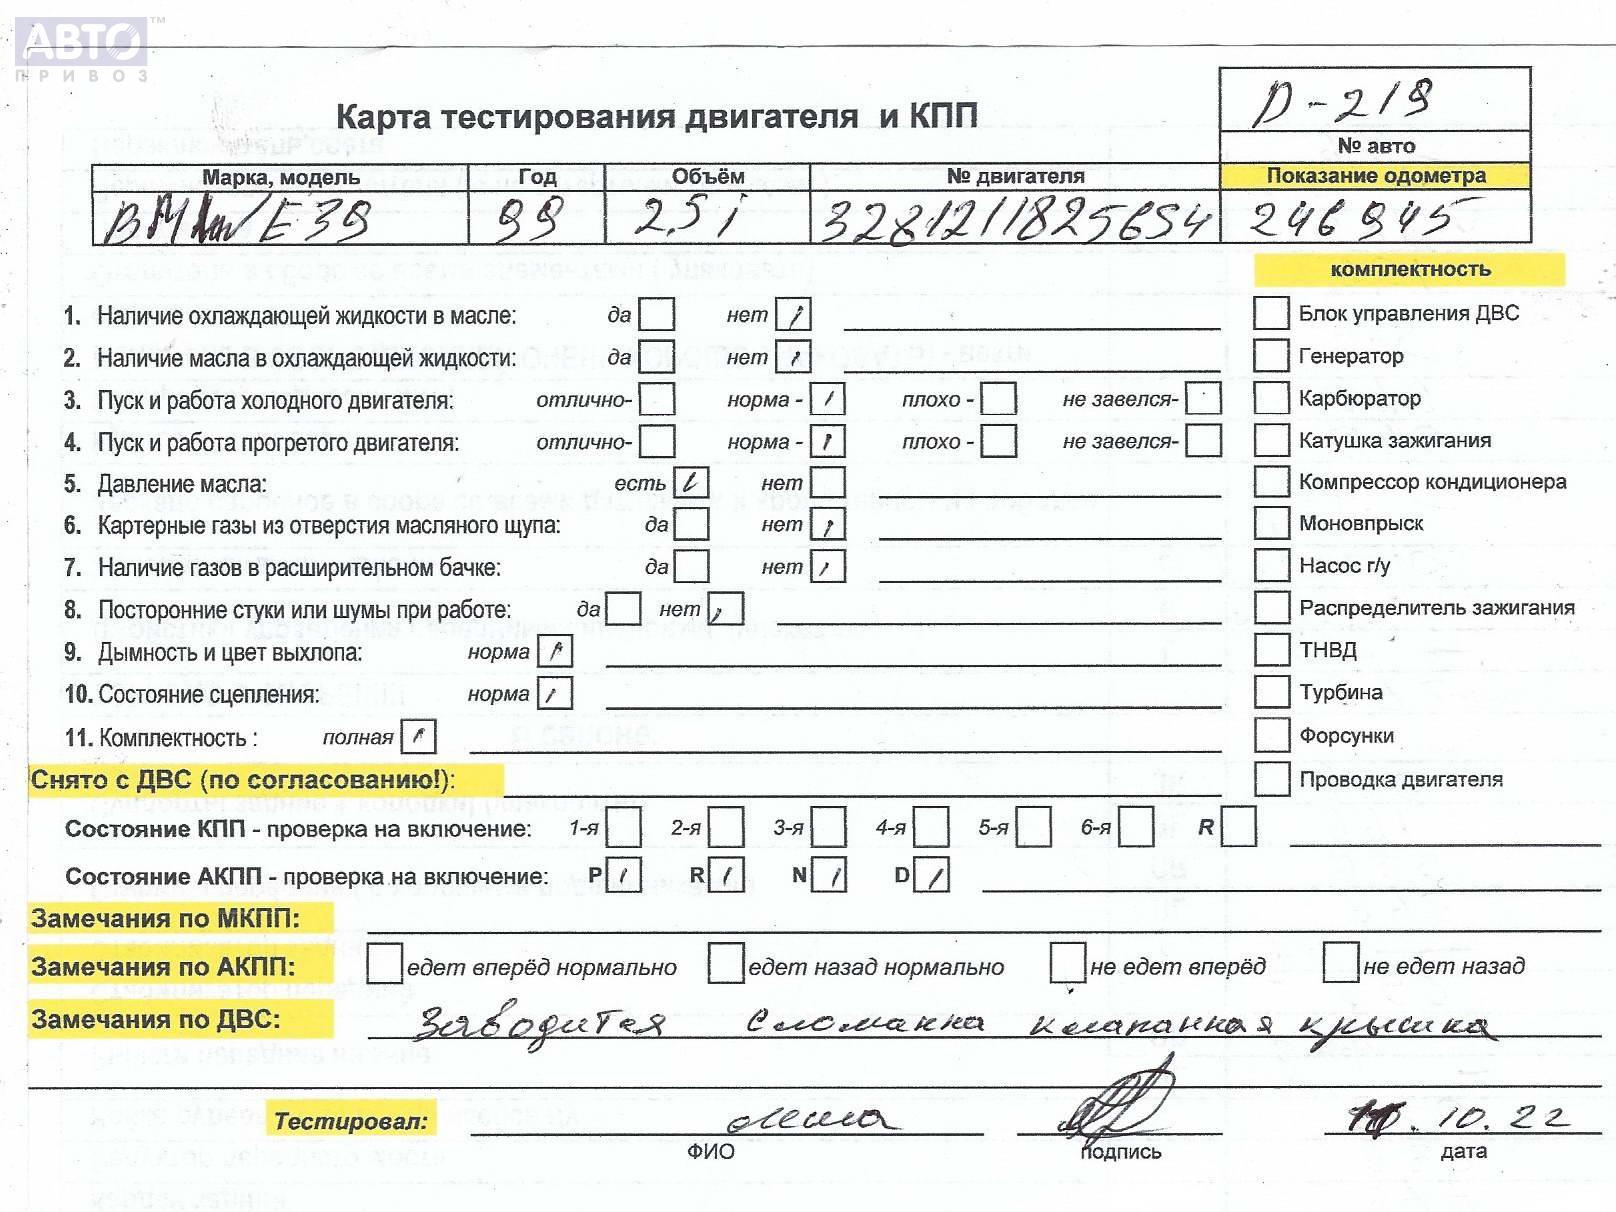 АВТО™
ПРИВОЗ
D-219
Карта тестирования двигателя и КПП
№ авто
Марка, модель Год Объём № двигателя Показание одометра
BMW/E39 99 2,5i 3281211825654 246945
комплектность
1. Наличие охлаждающей жидкости в масле: да нет Блок управления ДВС
2. Наличие масла в охлаждающей жидкости: да нет Генератор
3. Пуск и работа холодного двигателя: отлично- норма - плохо - не завелся- Карбюратор
4. Пуск и работа прогретого двигателя: отлично- норма - плохо - не завелся- Катушка зажигания
5. Давление масла: есть нет Компрессор кондиционера
6. Картерные газы из отверстия масляного щупа: да нет Моновпрыск
7. Наличие газов в расширительном бачке: да нет Насос г/у
8. Посторонние стуки или шумы при работе: да нет Распределитель зажигания
9. Дымность и цвет выхлопа: норма ТНВД
10. Состояние сцепления: норма Турбина
11. Комплектность : полная Форсунки
Снято с ДВС (по согласованию!): Проводка двигателя
Состояние КПП - проверка на включение: 1-я 2-я 3-я 4-я 5-я 6-я R
Состояние АКПП - проверка на включение: P R N D
Замечания по МКПП:
Замечания по АКПП: едет вперёд нормально едет назад нормально не едет вперёд не едет назад
Замечания по ДВС: Заводится сломанна клапанная крышка
Тестировал: .10.22
ФИО подпись дата